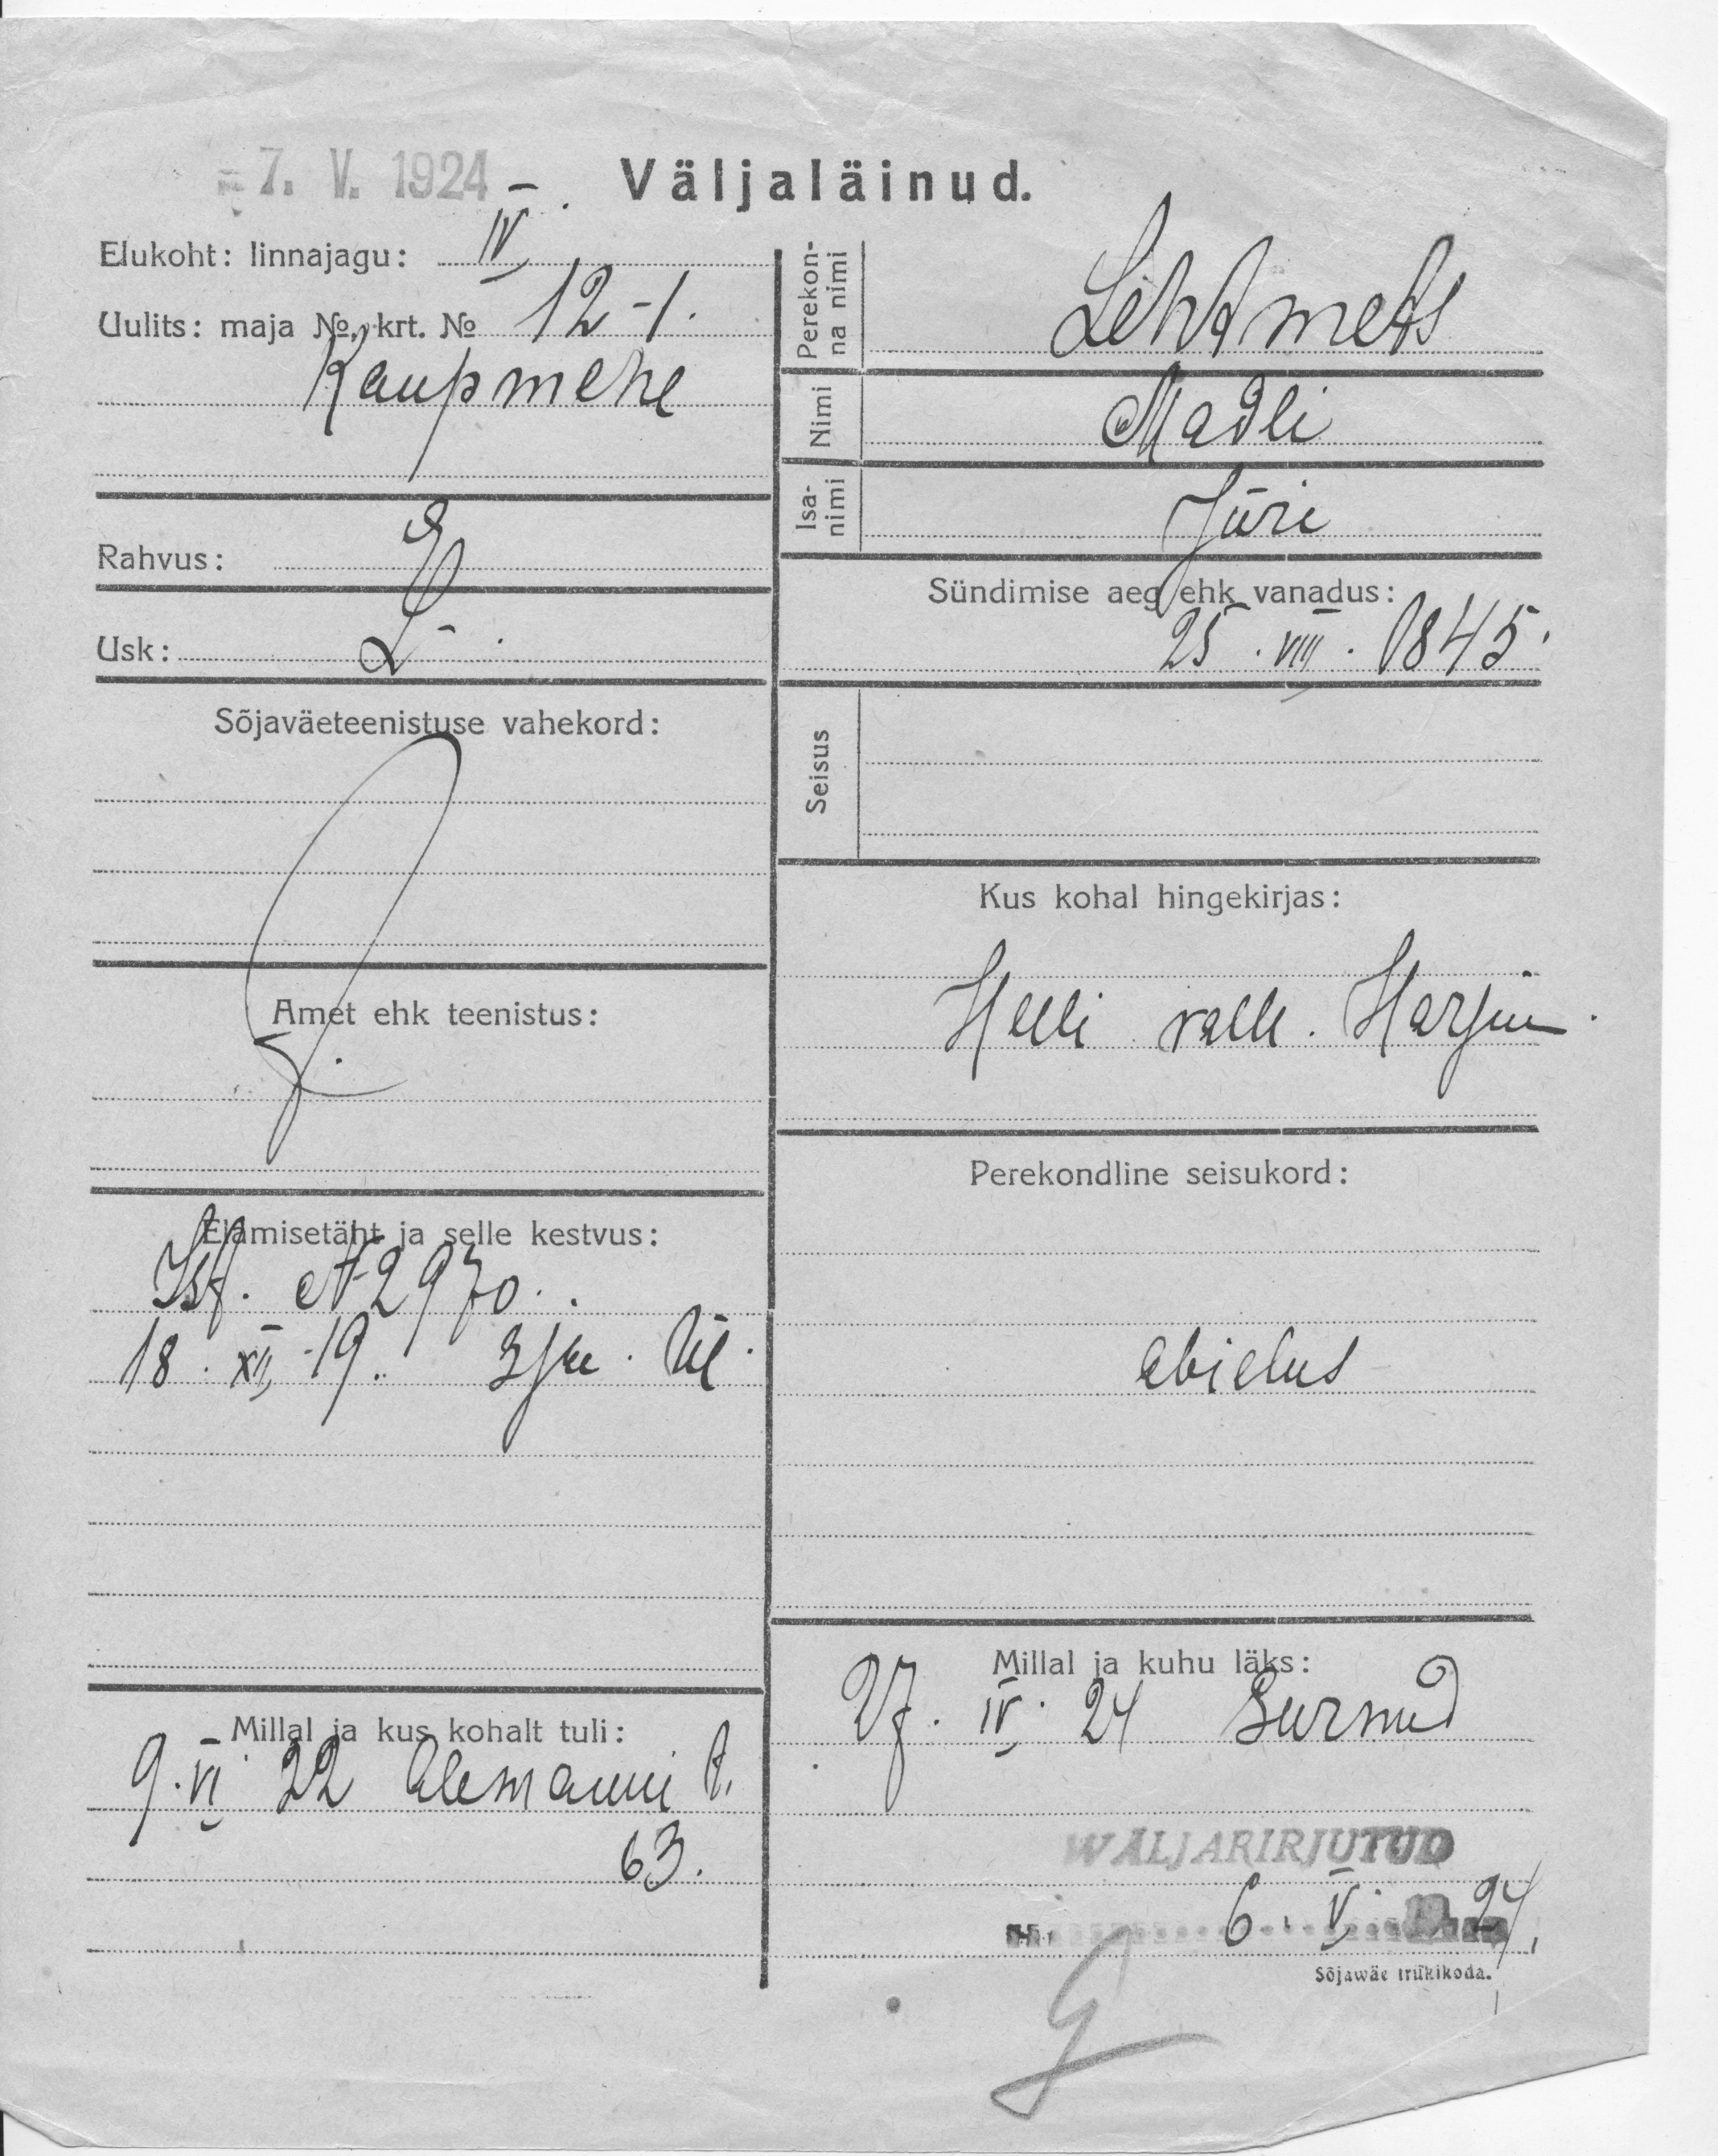 - 7. V. 1924
Väljaläinud.
Elukoht: linnajagu: IV
Uulits: maja №, krt. № 12-1.
Kaupmehe
Rahvus: E
Usk: L.
Sõjaväeteenistuse vahekord:
Amet ehk teenistus:
Elamisetäht ja selle kestvus:
Ist. № 2970.
18. XII 19. 3 jsk.
Millal ja kus kohalt tuli:
9. VI 22 Alemanni t.
63.
Perekonna nimi
Lehtmets
Nimi
Madli
Isanimi
Jüri
Sündimise aeg ehk vanadus:
25. VIII. 1845.
Seisus
Kus kohal hingekirjas:
vald. Harjum.
Perekondline seisukord:
abielus
Millal ja kuhu läks:
27. IV. 24 Surnud
WÄLJAKIRJUTUD
6. V. 1924.
Sõjawäe trükikoda.